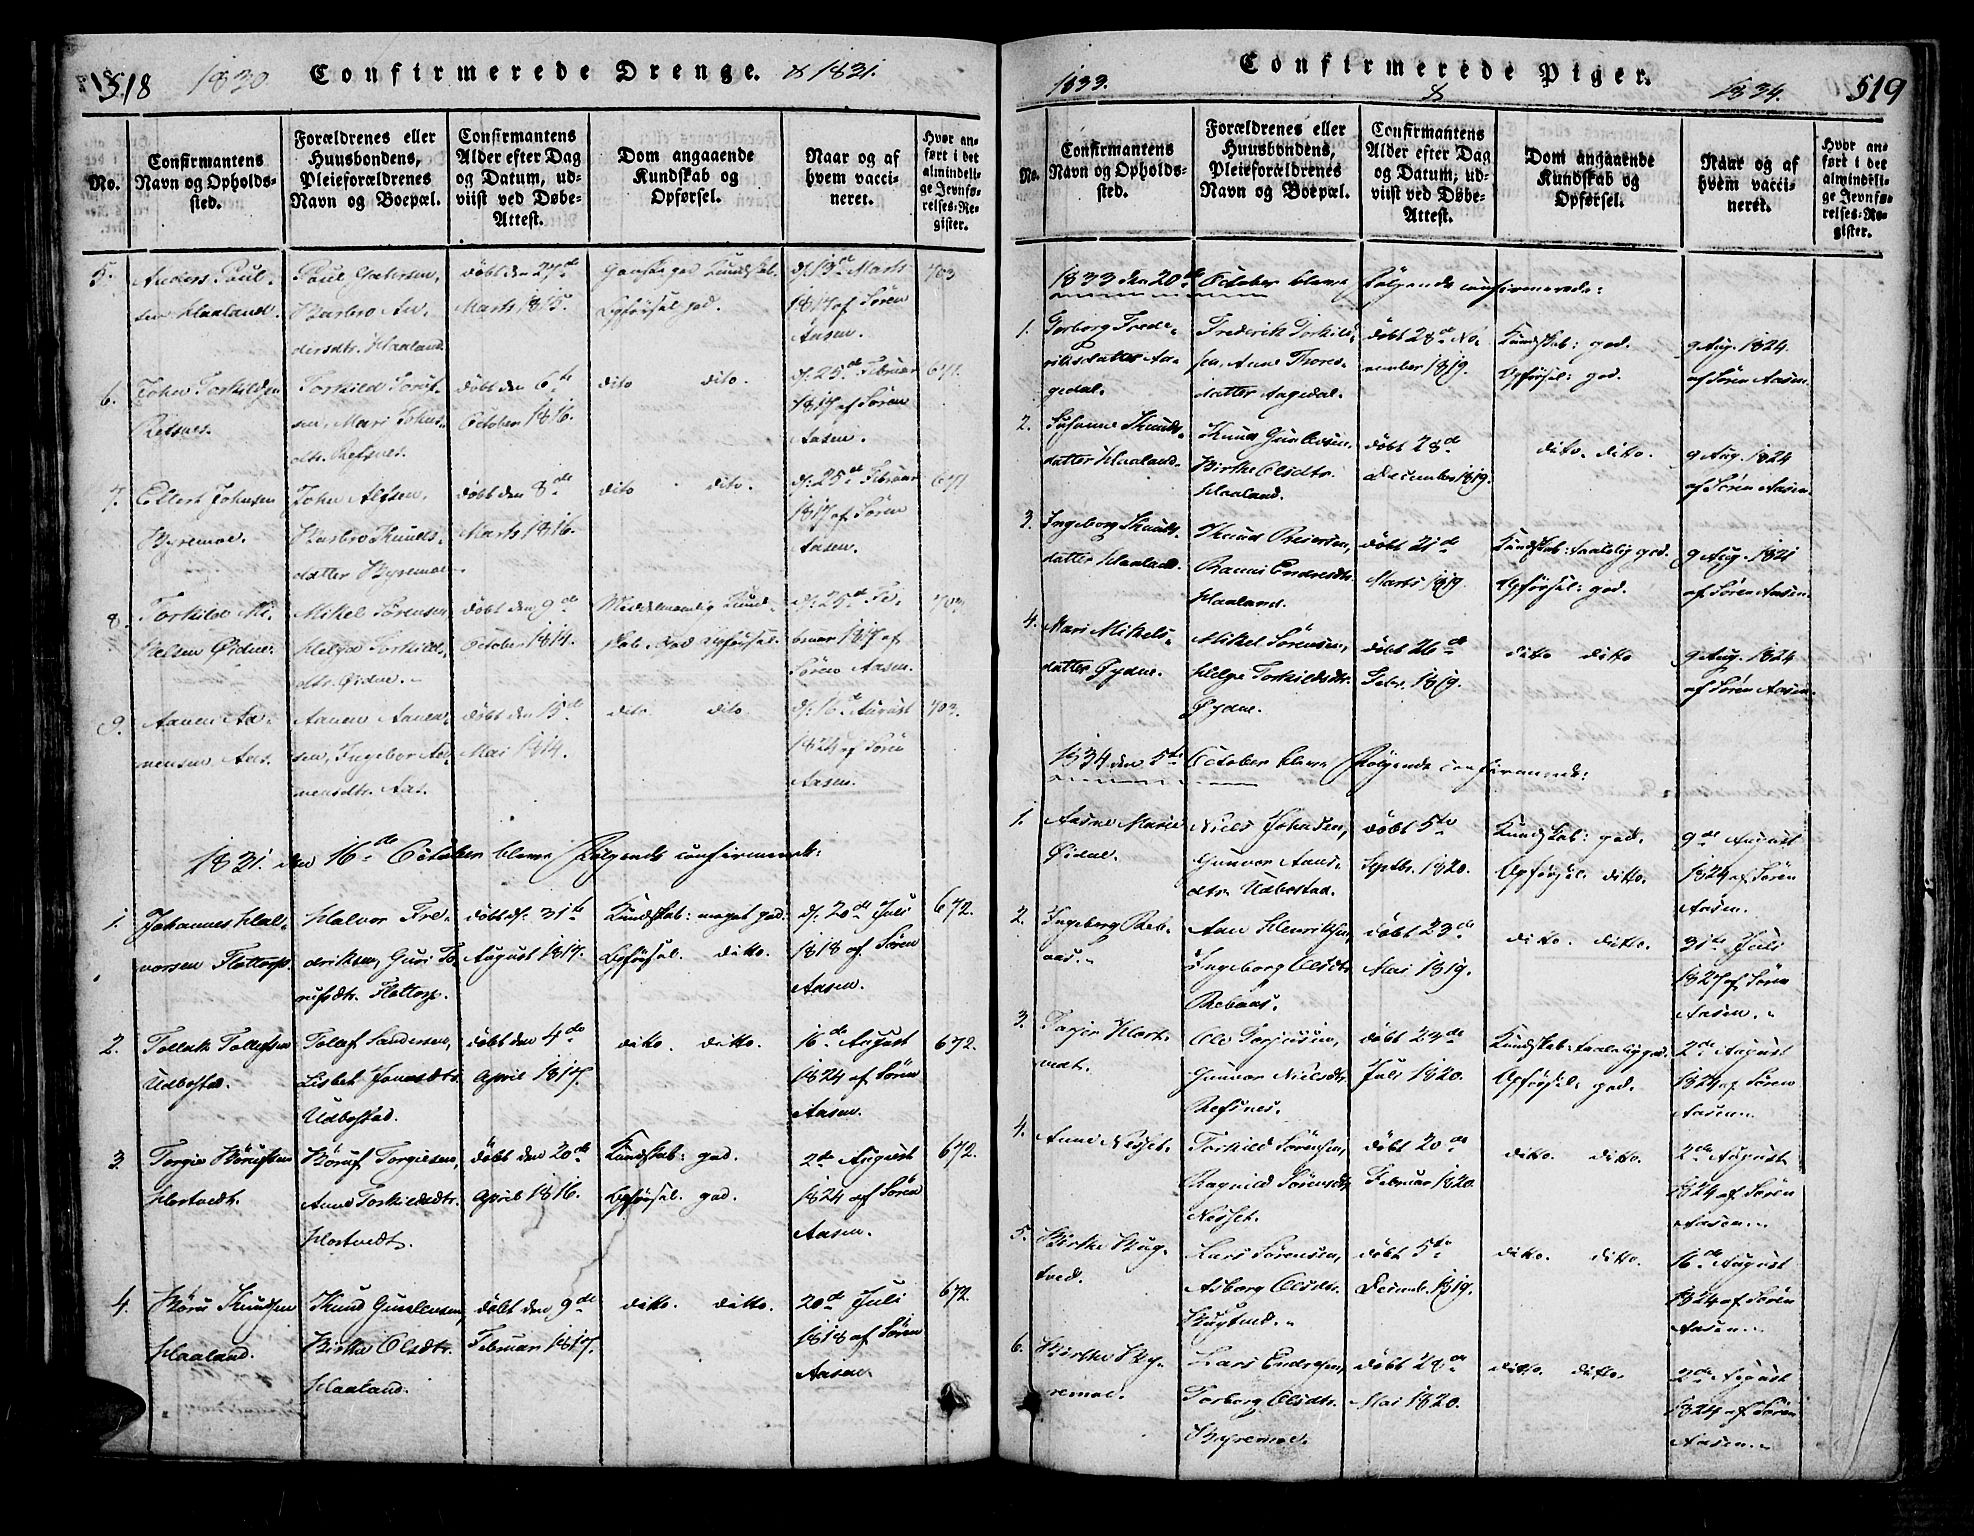 518 1830. Confirmerede Drenge. & 1831.
No.
Confirmantens
Navn og Opholds-
sted.
Forældrenes eller
Huusbondens,
Pleieforældrenes
Navn og Boepæl.
Confirmantens
Alder efter Dag
og Datum, ud-
viist ved Døbe-
Attest.
Dom angaaende
Kundskab og
Opførsel.
Naar og af
hvem vacci-
neret.
Hvor an-
ført i det
almindeli-
ge Jevnfø-
relses-Re-
gister.
5.
Anders Paul-
sen Haaland.
Paul Pedersen,
Barbro An-
dersdtr. Haaland.
døbt den 27de
Marts 1815.
Ganske god Kundskab.
Opførsel god.
d. 13de Marts
1817 af Søren
Aasen.
703
6.
John Torkildsen
Refsnes.
Torkild Joruf-
sen, Mari Johns-
dtr. Refsnes.
døbt den 6te
October 1816.
dito dito.
d. 25de Februar
1817 af Søren
Aasen.
671.
7.
Ellert Johnsen
Byremoe.
John Alfsen,
Barbro Knuds-
datter Byremoe.
døbt den 8de
Marts 1816.
dito dito.
d. 25de Februar
1817 af Søren
Aasen.
671
8.
Torkild Mi-
kelsen Øidne.
Mikel Sørensen
Helge Torkilds-
dtr. Øidne.
døbt den 9de
October 1814.
Middelmaadig Kund-
skab. God Opførsel.
d. 25de Fe-
bruar 1817 af
Søren Aasen.
703.
9.
Aanen Aa-
nensen Aas.
Aanen Aanen-
sen, Ingebor Aa-
nensdtr. Aas.
døbt den 15de
Mai 1814.
dito. dito.
d. 16de August
1824 af Søren
Aasen.
703.
1831. den 16de October bleve følgende confirmerede:
1.
Johannes Hal-
vorsen Flottorp.
Halvor Fre-
driksen, Guri To-
rufsdtr. Flottorp.
døbt d. 31te
August 1817.
Kundskab: meget god.
Opførsel. ditto.
d. 20de Juli
1818 af Søren
Aasen.
672.
2.
Tollak Tollefsen
Udbostad.
Tollef Sandersen,
Lisbet Jonasdtr.
Udbostad.
døbt den 4de
April 1817.
ditto. ditto.
16de August
1824 af Søren
Aasen.
672.
3.
Torgie Børufsen
Hortvedt.
Børuf Torgiesen,
Anne Torkildsdtr.
Hortvedt.
døbt den 20de
April 1816.
Kundskab: god.
Opførsel. god.
2de August
1824 af Søren
Aasen.
672.
4.
Børu Knudsen
Haaland.
Knud Gunlevsen,
Birthe Olsdtr.
Haaland.
døbt den 9de
Februar 1817.
ditto. ditto.
20de Juli
1818 af Søren
Aasen.
672.
1833. Confirmerede Piger. & 1834. 519
No.
Confirmantens
Navn og Opholds-
sted.
Forældrenes eller
Huusbondens,
Pleieforældrenes
Navn og Boepæl.
Confirmantens
Alder efter Dag
og Datum, ud-
viist ved Døbe-
Attest.
Dom angaaende
Kundskab og
Opførsel.
Naar og af
hvem vacci-
neret.
Hvor an-
ført i det
almindeli-
ge Jevnfø-
relses-Re-
gister.
1833 den 20de October bleve følgende confirmerede:
1.
Torborg Frede-
riksdatter Aa-
gedal.
Frederik Torkild-
sen, Anne Thores-
datter Aagedal.
døbt 28de No-
vember 1819.
Kundskab: god.
Opførsel: god.
9 Aug. 1824.
af Søren Aasen.
2.
Susanne Knuds-
datter Haaland.
Knud Gunlevsen,
Birthe Olsdtr.
Haaland.
døbt 28de
December 1819.
dito. dito.
9 Aug. 1824
af Søren Aasen.
3.
Ingeborg Knuds-
datter Haaland.
Knud Reiersen,
Ranni Endresdtr.
Haaland.
døbt 21de
Marts 1819.
Kundskab: taalelig god.
Opførsel: god.
9 Aug. 1821
af Søren Aasen.
4.
Mari Mikels-
datter Øydne.
Mikel Sørensen,
Helge Torkildsdtr.
Øydne.
døbt 26de
Febr. 1819.
ditto ditto
9 Aug. 1824
af Søren Aasen.
1834 den 5te October bleve følgende confirmerede:
1.
Aasne Marie
Øidne.
Niels Johnsen,
Gunvor Aans-
dtr. Udbostad.
døbt 5te
Septbr. 1820.
Kundskab: god.
Opførsel: ditto.
9de August
1824 af Søren
Aasen.
2.
Ingeborg Reb-
aas.
Aan Henriksen,
Ingeborg Olsdtr.
Rebaas.
døbt 23de
Mai 1819.
ditto. ditto.
31te Juli
1827 af Søren
Aasen.
3.
Torjer Hort-
mat.
Ole Torjusen,
Gunvor Nielsdtr.
Refsnes.
døbt 23de
Juli 1820.
Kundskab: taalelig god.
Opførsel: god.
2de August
1824 af Søren
Aasen.
4.
Anne Nesset.
Torkild Sørensen,
Ragnild Sørensdtr.
Nesset.
døbt 20de
Februar 1820
ditto. ditto.
2de August
1824 af Søren
Aasen.
5.
Birthe Bug-
tved.
Lars Sørensen,
Asborg Olsdtr.
Bugtved.
døbt 5te
Decemb. 1819.
ditto. ditto.
16de August
1824 af Søren
Aasen.
6.
Birthe By-
remoe.
Lars Endresen,
Torborg Olsdtr.
Byremoe.
døbt 28de
Mai 1820.
ditto. ditto.
2de August
1824 af Søren
Aasen.